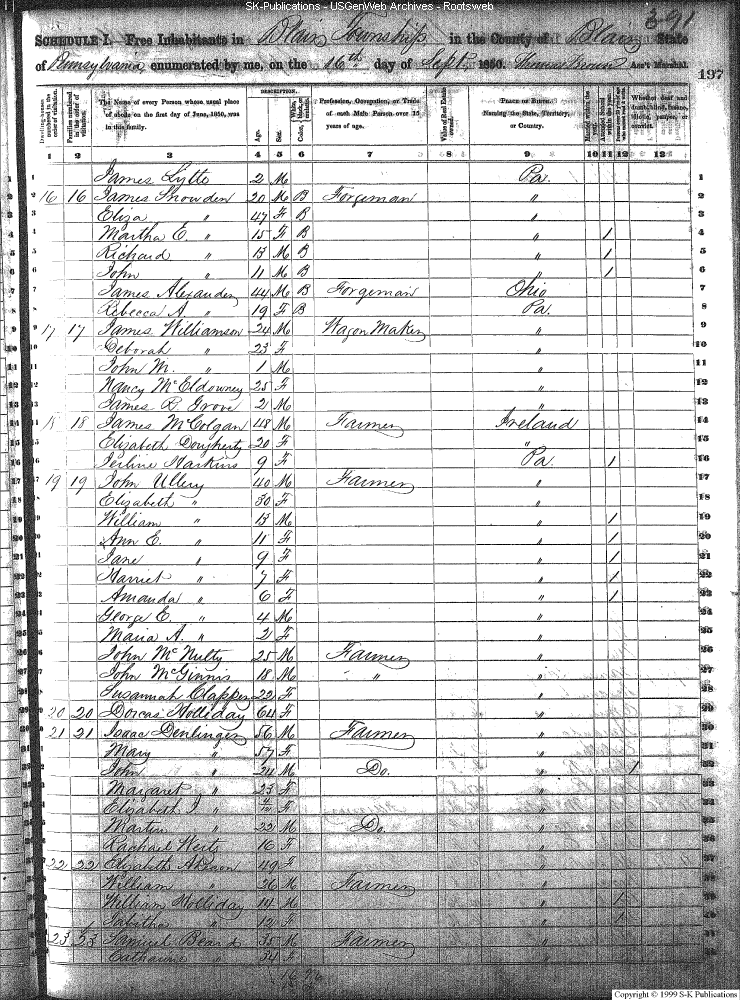 SK-Publications - USGenWeb Archives - Rootsweb
391
SCHEDULE I. Free Inhabitants in Blair Township in the County of Blair State
of Pennsylvania enumerated by me, on the 16th day of Sept. 1850. Ass't Marshal.
197
DESCRIPTION.
Dwelling-houses numbered in the order of visitation.
Families numbered in the order of visitation.
The Name of every Person whose usual place of abode on the first day of June, 1850, was in this family.
Age.
Sex.
Profession, Occupation, or Trade of each Male Person over 15 years of age.
Value of Real Estate owned.
PLACE OF BIRTH. Naming the State, Territory, or Country.
Whether deaf and dumb, blind, insane, idiotic, pauper, or convict.
1 2 3 4 5 6 7 8 9 10 11 12 13
1 James Lytle 2 M Pa. 1
2 16 16 James Snowden 20 M B Forgeman " 2
3 Eliza " 47 F B " 3
4 Martha E. " 15 F B " / 4
5 Richard " 13 M B " / 5
6 John " 11 M B " / 6
7 James Alexander 44 M B Forgeman Ohio 7
8 Rebecca A. " 19 F B Pa. 8
9 17 17 James Williamson 24 M Wagon Maker " 9
10 Deborah " 23 F " 10
11 John M. " 1 M " 11
12 Nancy McEldowney 25 F " 12
13 James R Grove 2 M " 13
14 18 18 James McColgan 48 M Farmer Ireland 14
15 Elizabeth Dougherty 20 F " 15
16 Harkins 9 F Pa. / 16
17 19 19 John Ullery 40 M Farmer " 17
18 Elizabeth " 30 F " 18
19 William " 13 M " / 19
20 Ann E. " 11 F " / 20
21 Jane " 9 F " / 21
22 Harriet " 7 F " / 22
23 Amanda " 6 F " / 23
24 George E. " 4 M " 24
25 Maria A. " 2 F " 25
26 John McNulty 25 M Farmer " 26
27 John McGinnis 18 M " " 27
28 Susannah Clapper 22 F " 28
29 20 20 Dorcas Holliday 64 F " 29
30 21 21 Isaac Denlinger 56 M Farmer " 30
31 Mary " 57 F " 31
32 John " 24 M Do. " / 32
33 Margaret " 23 F " 33
34 Elizabeth J " F " 34
35 Martin " 22 M Do. " 35
36 Rachael 16 F " 36
37 22 22 Elizabeth 49 F " 37
38 William " 26 M Farmer " 38
39 William Holliday 14 M " / 39
40 Tabitha " 12 F " / 40
41 23 23 Samuel Beard 35 M Farmer " 41
42 Catharine " 34 F " 42
Copyright © 1999 S-K Publications